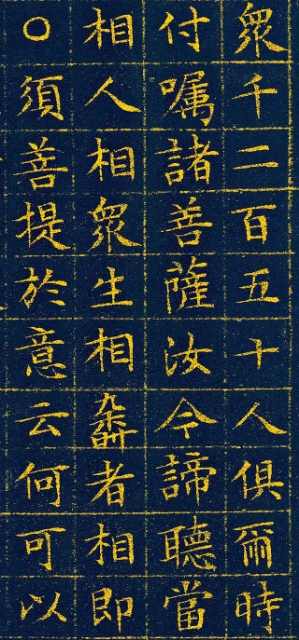 衆千二百五十人俱爾時
付嘱諸善薩汝今諦聽當
相人相衆生相者相即
○須善提於意云何可以